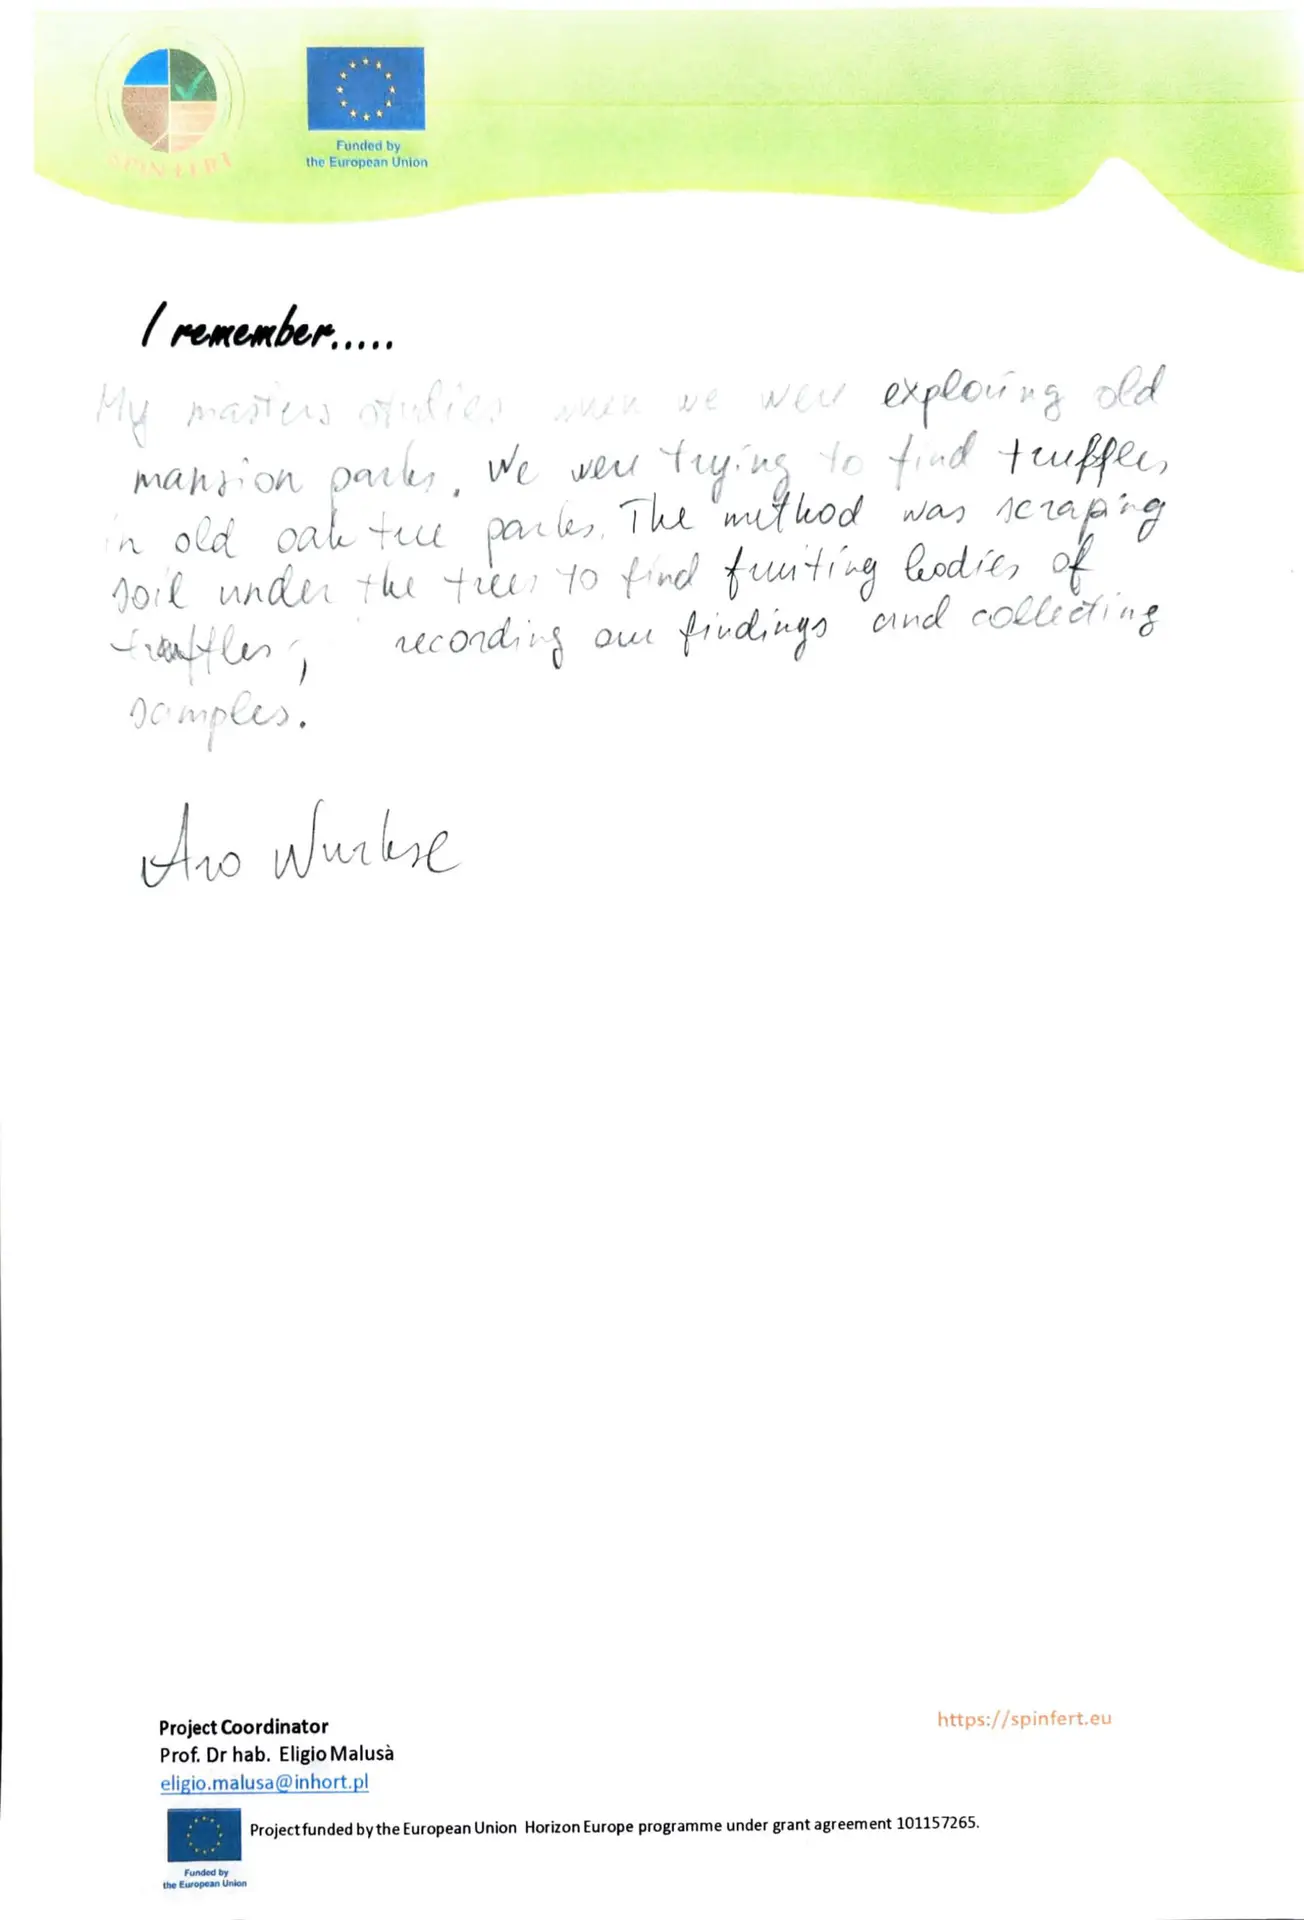 SPINFERT
Funded by
the European Union
I remember.....
My masters studies when we were exploring old
mansion parks. We were trying to find truffles
in old oak tree parks. The method was scraping
soil under the trees to find fruiting bodies of
truffles, recording our findings and collecting
samples.
Aro Wurkse
Project Coordinator
Prof. Dr hab. Eligio Malusà
eligio.malusa@inhort.pl
https://spinfert.eu
Project funded by the European Union Horizon Europe programme under grant agreement 101157265.
Funded by
the European Union